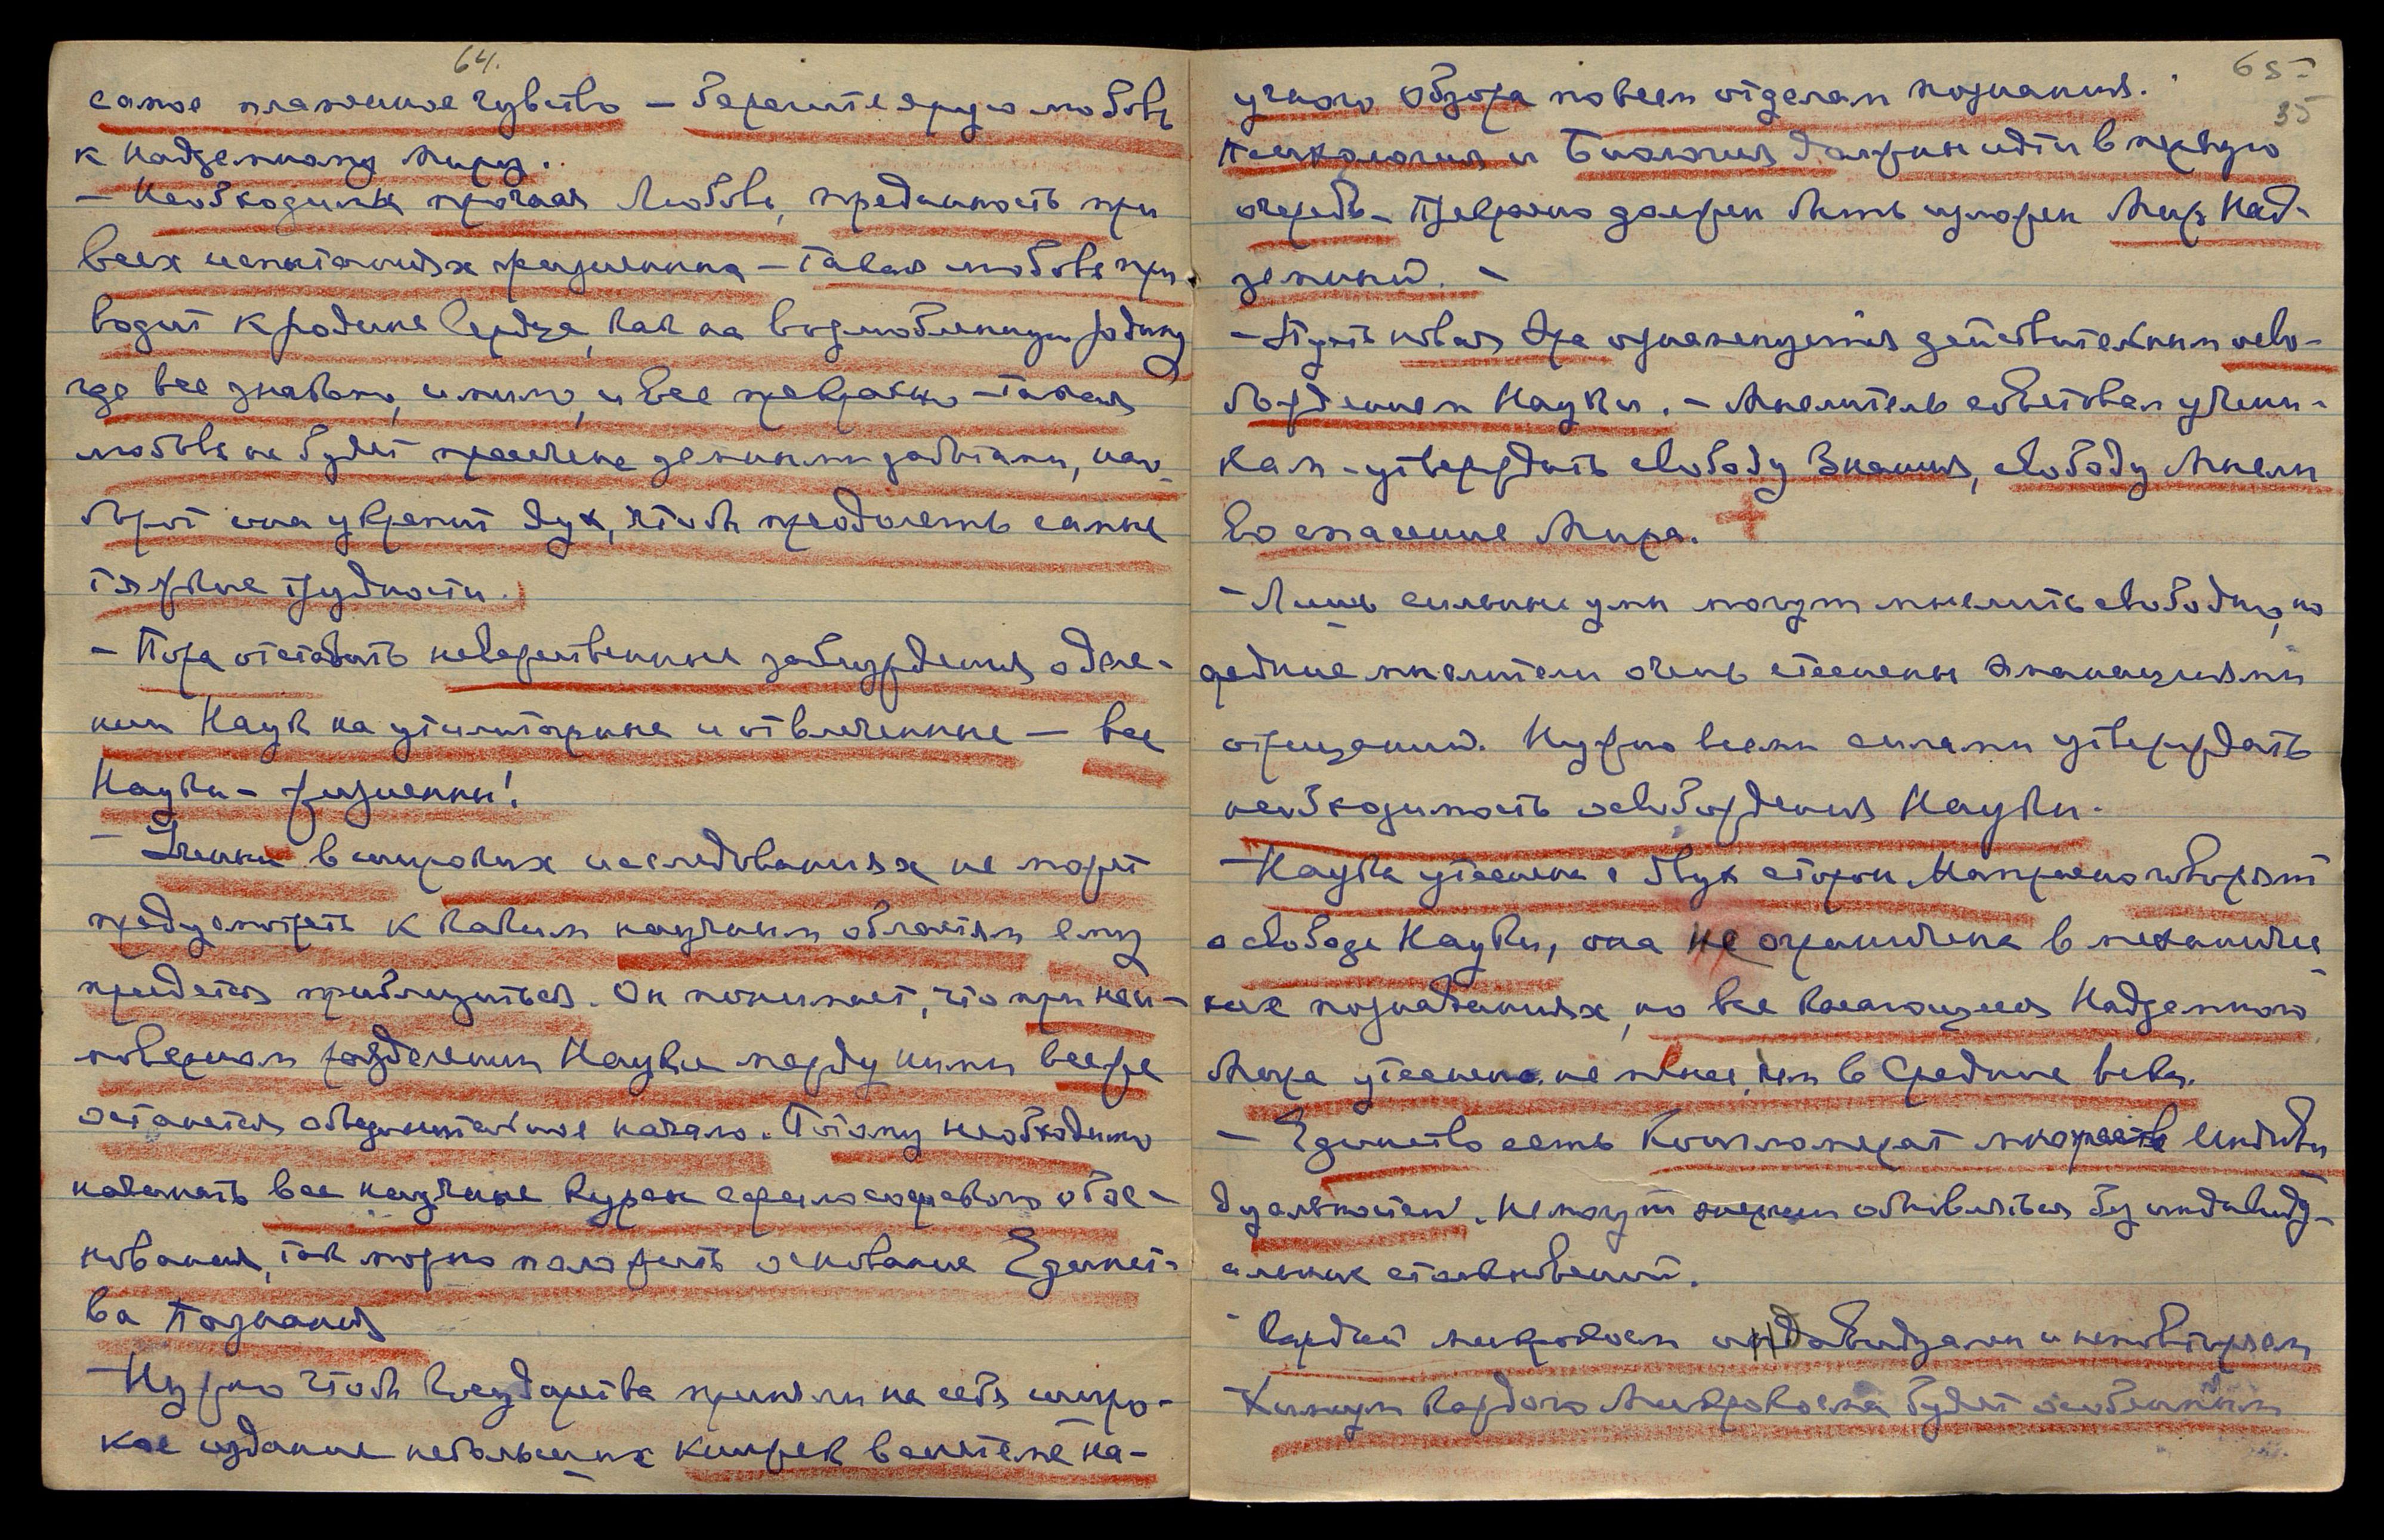 64.
самое пламенное чувство – берегите ярую любовь
к Надземному Миру.
– Необходима прочная Любовь, преданность при
всех испытаниях жизненных – такая любовь при-
водит к родине Сердца, как на возлюбленную родину
где все знакомо, и мило, и все прекрасно – такая
любовь не будет пресечена земными заботами, нао-
борот она укрепит дух, чтобы преодолеть самые
тяжкие трудности.
– Пора отставить невежественные заблуждения о деле-
нии Наук на утилитарные и отвлеченные – все
Науки – жизненны!
– Ученый в широких исследованиях не может
предусмотреть к каким научным областям ему
придется приблизиться. Он понимает, что при наи-
новерном разделении Науки между ними всегда
останется объединительное начало. Потому необходимо
начинать все научные курсы с философского обос-
нования, так можно положить основание Единст-
ва Познания
– Нужно чтобы Государства приняли на себя широ-
кое издание небольших книжек в системе на-
65
35
учного обзора по всем отделам познания.
Психология и Биология должны идти в первую
очередь – Прекрасно должен быть изложен Мир Над-
земный. –
– Пусть новая Эра ознаменуется действительным осво-
бождением Науки. – Мыслитель советовал учени-
кам – утверждать свободу Знания, свободу Мысли
во спасение Мира.
– Лишь сильные умы могут мыслить свободно, но
редкие мыслители очень стеснены эманациями
отрицаний. Нужно всеми силами утверждать
необходимость освобождения Науки.
– Наука утеснена с двух сторон. Напрасно говорят
о свободе Науки, она не ограничена в механичес
ких познаваниях, но все касающееся Надземного
Мира утеснено не менее, чем в Средние века.
– Единство есть Конгломерат множеств Индиви
дуальностей. Не могут энергии обновляться без индивиду-
альных столкновений.
– Каждый микрокосм индивидуален и неповторяем
– Химизм каждого Микрокосма будет особенным